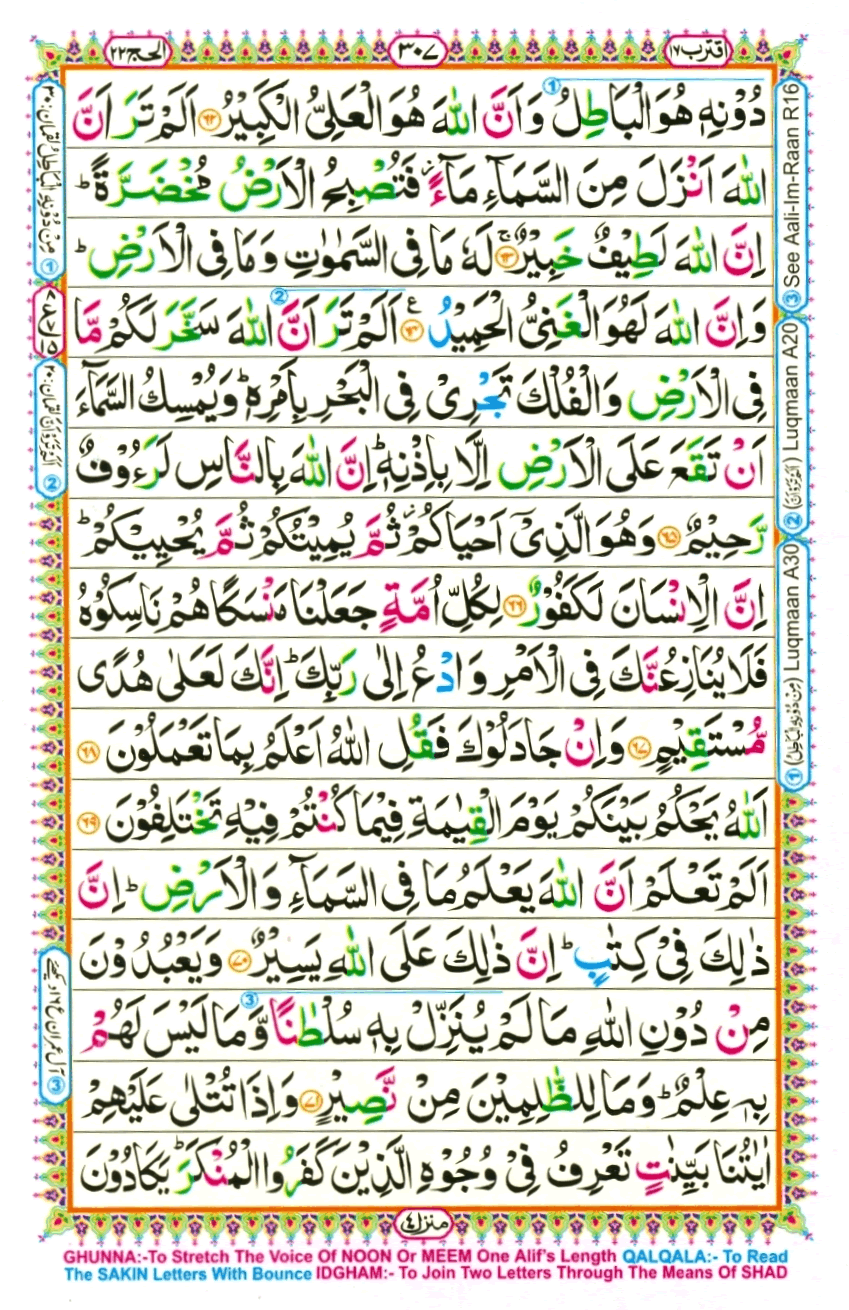 اقترب ١٧
٣٠٧
الحج ٢٢
دُوْنِهٖ هُوَ الْبَاطِلُ وَ اَنَّ اللّٰهَ هُوَ الْعَلِیُّ الْكَبِیْرُ ﴿۶۲﴾ اَلَمْ تَرَ اَنَّ
اللّٰهَ اَنْزَلَ مِنَ السَّمَآءِ مَآءً ؗ فَتُصْبِحُ الْاَرْضُ مُخْضَرَّةً ؕ
اِنَّ اللّٰهَ لَطِیْفٌ خَبِیْرٌ ﴿۶۳﴾ۚ لَهٗ مَا فِی السَّمٰوٰتِ وَمَا فِی الْاَرْضِ ؕ
وَ اِنَّ اللّٰهَ لَهُوَ الْغَنِیُّ الْحَمِیْدُ ﴿۶۴﴾ۧ اَلَمْ تَرَ اَنَّ اللّٰهَ سَخَّرَ لَكُمْ مَّا
فِی الْاَرْضِ وَ الْفُلْكَ تَجْرِیْ فِی الْبَحْرِ بِاَمْرِهٖ ؕ وَیُمْسِكُ السَّمَآءَ
اَنْ تَقَعَ عَلَی الْاَرْضِ اِلَّا بِاِذْنِهٖ ؕ اِنَّ اللّٰهَ بِالنَّاسِ لَرَءُوْفٌ
رَّحِیْمٌ ﴿۶۵﴾ وَهُوَ الَّذِیْۤ اَحْیَاكُمْ ؗ ثُمَّ یُمِیْتُكُمْ ثُمَّ یُحْیِیْكُمْ ؕ
اِنَّ الْاِنْسَانَ لَكَفُوْرٌ ﴿۶۶﴾ لِكُلِّ اُمَّةٍ جَعَلْنَا مَنْسَكًا هُمْ نَاسِكُوْهُ
فَلَا یُنَازِعُنَّكَ فِی الْاَمْرِ وَ ادْعُ اِلٰی رَبِّكَ ؕ اِنَّكَ لَعَلٰی هُدًی
مُّسْتَقِیْمٍ ﴿۶۷﴾ وَ اِنْ جَادَلُوْكَ فَقُلِ اللّٰهُ اَعْلَمُ بِمَا تَعْمَلُوْنَ ﴿۶۸﴾
اَللّٰهُ یَحْكُمُ بَیْنَكُمْ یَوْمَ الْقِیٰمَةِ فِیْمَا كُنْتُمْ فِیْهِ تَخْتَلِفُوْنَ ﴿۶۹﴾
اَلَمْ تَعْلَمْ اَنَّ اللّٰهَ یَعْلَمُ مَا فِی السَّمَآءِ وَ الْاَرْضِ ؕ اِنَّ
ذٰلِكَ فِیْ كِتٰبٍ ؕ اِنَّ ذٰلِكَ عَلَی اللّٰهِ یَسِیْرٌ ﴿۷۰﴾ وَ یَعْبُدُوْنَ
مِنْ دُوْنِ اللّٰهِ مَا لَمْ یُنَزِّلْ بِهٖ سُلْطٰنًا وَّ مَا لَیْسَ لَهُمْ
بِهٖ عِلْمٌ ؕ وَمَا لِلظّٰلِمِیْنَ مِنْ نَّصِیْرٍ ﴿۷۱﴾ وَ اِذَا تُتْلٰی عَلَیْهِمْ
اٰیٰتُنَا بَیِّنٰتٍ تَعْرِفُ فِیْ وُجُوْهِ الَّذِیْنَ كَفَرُوا الْمُنْكَرَ ؕ یَكَادُوْنَ
منزل ٤
③ See Aali-Im-Raan R16
② (اَلَمْ تَرَ اَنَّ) Luqmaan A20
① (مِنْ دُوْنِهِ الْبَاطِلُ) Luqmaan A30
مِنْ دُوْنِهِ الْبَاطِلُ لقمان: ۳۰ ①
اَلَمْ تَرَوْا اَنَّ لقمان: ۲۰ ②
آل عمران ع ۱۶ دیکھئے ③
GHUNNA:-To Stretch The Voice Of NOON Or MEEM One Alif's Length QALQALA:- To Read
The SAKIN Letters With Bounce IDGHAM:- To Join Two Letters Through The Means Of SHAD